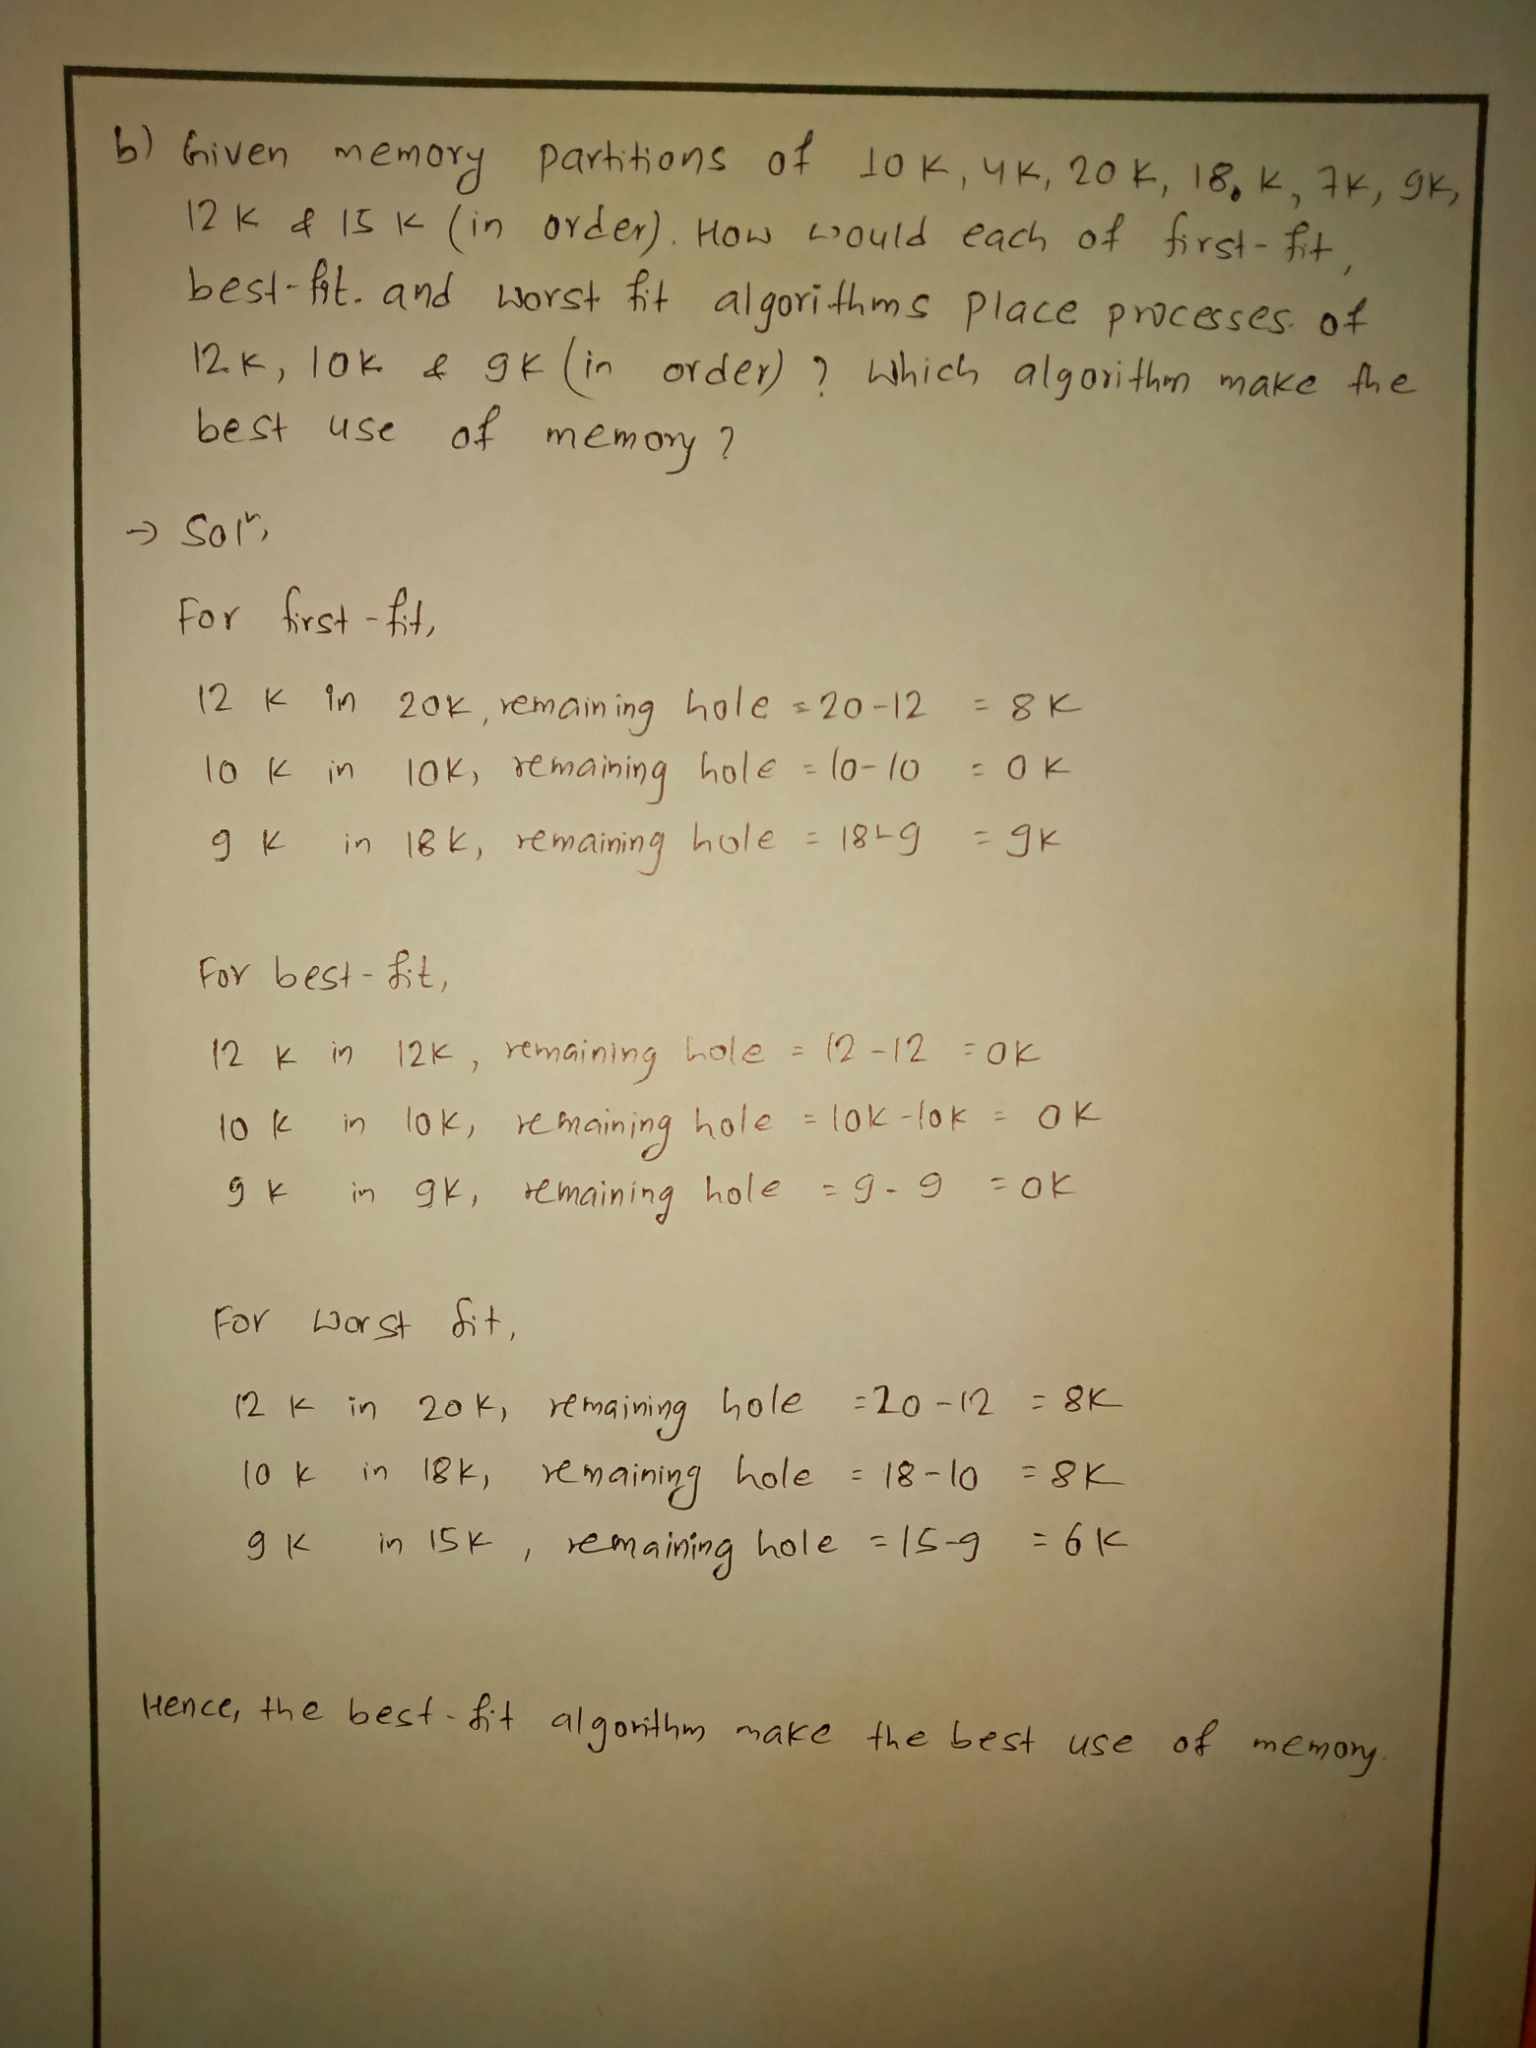 b) Given memory partitions of 10K, 4K, 20K, 18K, 7K, 9K,
12K & 15K (in order). How would each of first-fit,
best-fit. and worst fit algorithms place processes of
12K, 10K & 9K (in order) ? Which algorithm make the
best use of memory ?
→ Solⁿ,
For first-fit,
12 K in 20K, remaining hole = 20-12 = 8K
10 K in 10K, remaining hole = 10-10 = 0K
9 K in 18K, remaining hole = 18-9 = 9K
For best-fit,
12 K in 12K, remaining hole = 12-12 = 0K
10 K in 10K, remaining hole = 10K-10K = 0K
9 K in 9K, remaining hole = 9-9 = 0K
For worst fit,
12 K in 20K, remaining hole = 20-12 = 8K
10 K in 18K, remaining hole = 18-10 = 8K
9 K in 15K, remaining hole = 15-9 = 6K
Hence, the best-fit algorithm make the best use of memory.